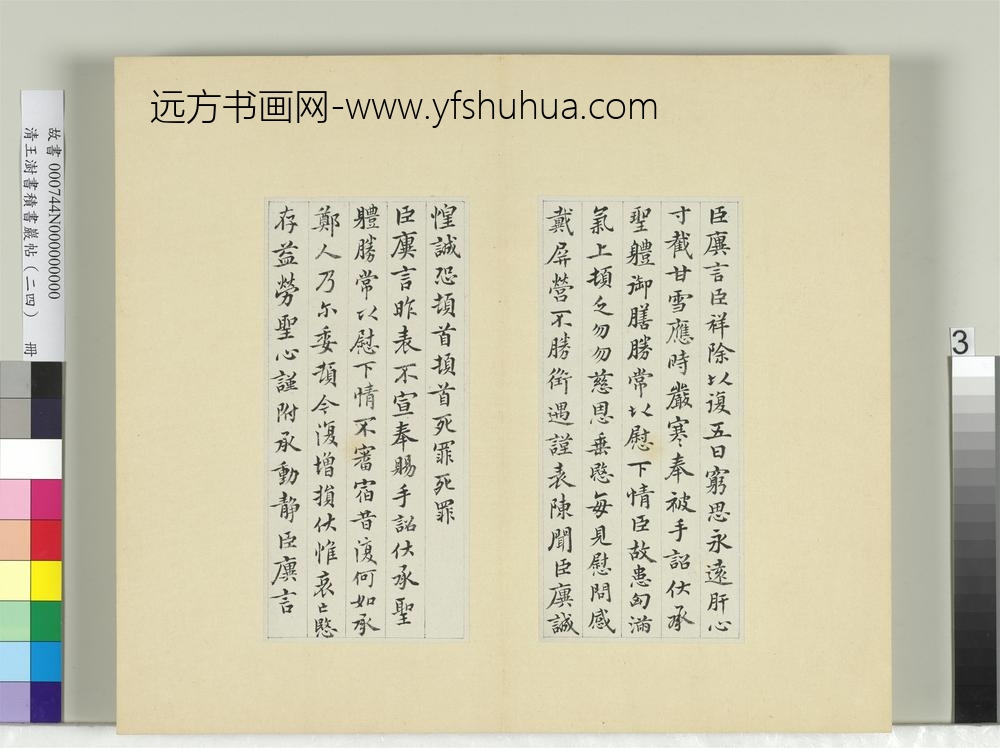 远方书画网-www.yfshuhua.com
臣廙言臣祥除以復五日窮思永遠肝心
寸截甘雪應時嚴寒奉被手詔伏承
聖體御膳勝常以慰下情臣故患匈滿
氣上頓乏勿勿慈思垂愍每見慰問感
戴屏營不勝銜遇謹表陳聞臣廙誠
惶誠恐頓首頓首死罪死罪
臣廙言昨表不宣奉賜手詔伏承聖
體勝常以慰下情不審宿昔復何如承
鄭人乃尓委頓令復增損伏惟哀亡愍
存益勞聖心謹附承動靜臣廙言
故書 000744N000000000
清王澍書積書巖帖（二四） 冊
3